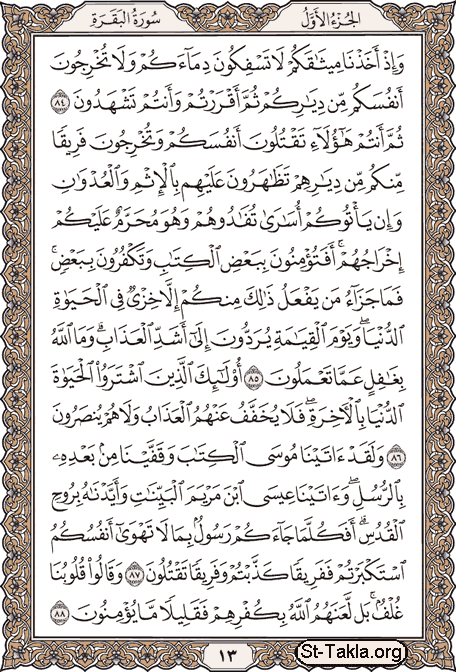 سُورَةُ البَقَرَةِ الجُزْءُ الأَوَّلُ
وَإِذْ أَخَذْنَا مِيثَٰقَكُمْ لَا تَسْفِكُونَ دِمَآءَكُمْ وَلَا تُخْرِجُونَ
أَنفُسَكُم مِّن دِيَٰرِكُمْ ثُمَّ أَقْرَرْتُمْ وَأَنتُمْ تَشْهَدُونَ ٨٤
ثُمَّ أَنتُمْ هَٰٓؤُلَآءِ تَقْتُلُونَ أَنفُسَكُمْ وَتُخْرِجُونَ فَرِيقًا
مِّنكُم مِّن دِيَٰرِهِمْ تَظَٰهَرُونَ عَلَيْهِم بِٱلْإِثْمِ وَٱلْعُدْوَٰنِ
وَإِن يَأْتُوكُمْ أُسَٰرَىٰ تُفَٰدُوهُمْ وَهُوَ مُحَرَّمٌ عَلَيْكُمْ
إِخْرَاجُهُمْ ۚ أَفَتُؤْمِنُونَ بِبَعْضِ ٱلْكِتَٰبِ وَتَكْفُرُونَ بِبَعْضٍ ۚ
فَمَا جَزَآءُ مَن يَفْعَلُ ذَٰلِكَ مِنكُمْ إِلَّا خِزْىٌ فِى ٱلْحَيَوٰةِ
ٱلدُّنْيَا ۖ وَيَوْمَ ٱلْقِيَٰمَةِ يُرَدُّونَ إِلَىٰٓ أَشَدِّ ٱلْعَذَابِ ۗ وَمَا ٱللَّهُ
بِغَٰفِلٍ عَمَّا تَعْمَلُونَ ٨٥ أُو۟لَٰٓئِكَ ٱلَّذِينَ ٱشْتَرَوُا۟ ٱلْحَيَوٰةَ
ٱلدُّنْيَا بِٱلْءَاخِرَةِ ۖ فَلَا يُخَفَّفُ عَنْهُمُ ٱلْعَذَابُ وَلَا هُمْ يُنصَرُونَ
٨٦ وَلَقَدْ ءَاتَيْنَا مُوسَى ٱلْكِتَٰبَ وَقَفَّيْنَا مِنۢ بَعْدِهِۦ
بِٱلرُّسُلِ ۖ وَءَاتَيْنَا عِيسَى ٱبْنَ مَرْيَمَ ٱلْبَيِّنَٰتِ وَأَيَّدْنَٰهُ بِرُوحِ
ٱلْقُدُسِ ۗ أَفَكُلَّمَا جَآءَكُمْ رَسُولٌۢ بِمَا لَا تَهْوَىٰٓ أَنفُسُكُمُ
ٱسْتَكْبَرْتُمْ فَفَرِيقًا كَذَّبْتُمْ وَفَرِيقًا تَقْتُلُونَ ٨٧ وَقَالُوا۟ قُلُوبُنَا
غُلْفٌۢ ۚ بَل لَّعَنَهُمُ ٱللَّهُ بِكُفْرِهِمْ فَقَلِيلًا مَّا يُؤْمِنُونَ ٨٨
١٣
St-Takla.org